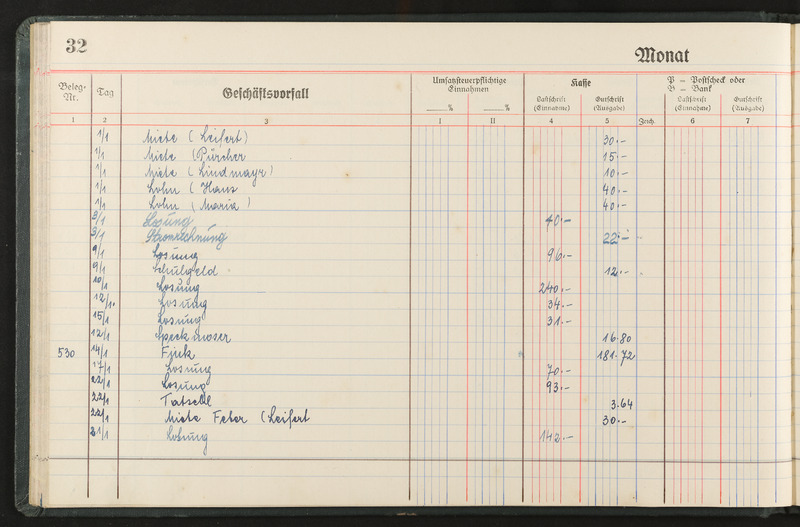 32
Monat
Beleg-Nr. Tag Geschäftsvorfall Umsatzsteuerpflichtige Einnahmen Kasse P = Postscheck oder B = Bank
% % Lastschrift (Einnahme) Gutschrift (Ausgabe) Zeich. Lastschrift (Einnahme) Gutschrift (Ausgabe)
1 2 3 I II 4 5 6 7
1/1 Miete (Leifert) 30.-
1/1 Miete (Pürcher 15.-
1/1 Miete (Lindmayr) 10.-
1/1 Lohn (Hans 40.-
1/1 Lohn (Maria) 40.-
3/1 Losung 40.-
3/1 Stromrechnung 22.-
9/1 Losung 96.-
9/1 Schulgeld 12.-
10/1 Losung 240.-
12/1. Losung 34.-
15/1 Losung 31.-
12/1 Speckmoser 16.80
530 14/1 181.72
17/1 Losung 70.-
22/1 Losung 93.-
22/1 3.64
22/1 Miete Feber (Leifert 30.-
31/1 Losung 142.-